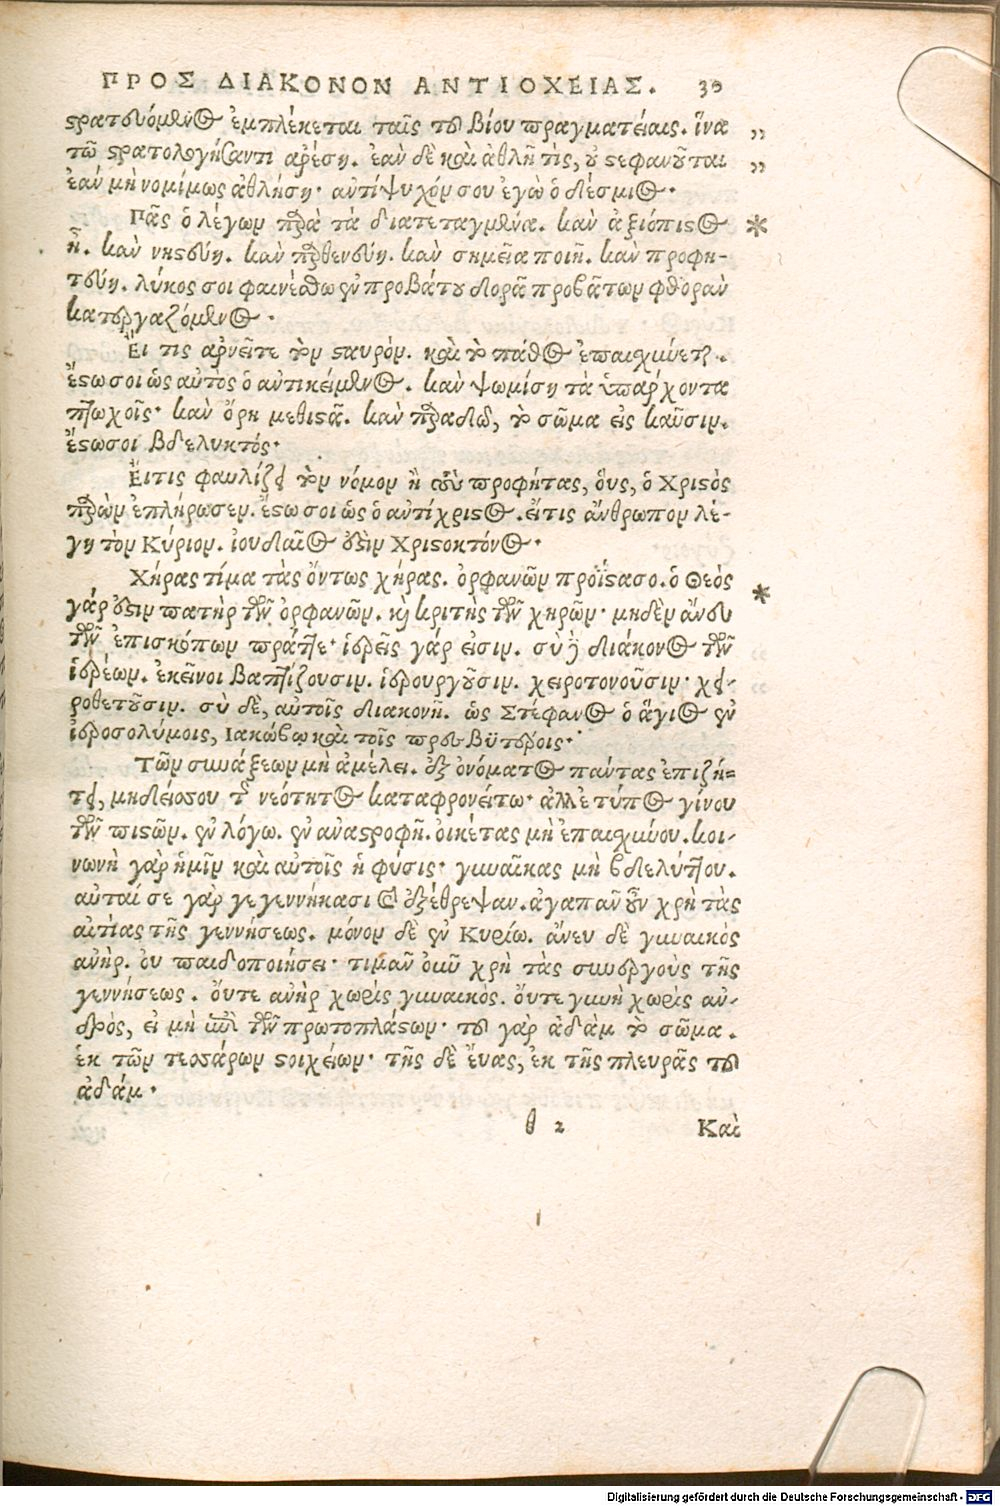 ΠΡΟΣ ΔΙΑΚΟΝΟΝ ΑΝΤΙΟΧΕΙΑΣ. 30
στρατευόμενος ἐμπλέκεται ταῖς τοῦ βίου πραγματείαις. ἵνα „
τῶ στρατολογήσαντι ἀρέσῃ. ἐὰν δὲ καὶ ἀθλῆ τὶς, οὐ στεφανοῦται „
ἐὰν μὴ νομίμως ἀθλήσῃ· ἀντίψυχόν σου ἐγὼ ὁ δέσμιος.
Πᾶς ὁ λέγων παρὰ τὰ διατεταγμένα. κἂν ἀξιόπιστος *
ῆ. κἂν νηστεύῃ. κἂν παρθενεύῃ. κἂν σημεῖα ποιῆ. κἂν προφη-
τεύῃ. λύκος σοι φαινέσθω ἐν προβάτου δορᾶ προβᾶτων φθορὰν
κατεργαζόμενος.
Ἔι τις ἀρνεῖται τὸν σταυρόν. καὶ τὸ πάθος ἐπαισχύνεται.
ἔστω σοι ὡς αὐτος ὁ ἀντικείμενος. κἂν ψωμίσῃ τὰ ὑπαρχοντα
πτωχοῖς· κἂν ὄρη μεθιστᾶ. κἂν παραδῶ, τὸ σῶμα εἰς καῦσιν.
ἔστω σοι βδελυκτός·
Ἔιτις φαυλίζει τὸν νόμον ἢ τοὺς προφήτας, οὓς, ὁ Χριστὸς
παρὼν ἐπλήρωσεν. ἔστω σοι ὡς ὁ ἀντίχριστος. εἴτις ἄνθρωπον λέ-
γῃ τὸν Κύριον. ἰουδαῖος ἐστὶν Χριστοκτόνος.
Χήρας τίμα τὰς ὄντως χήρας. ὀρφανῶν προΐστασο. ὁ Θεὸς *
γάρ ἐστιν πατὴρ τῶν ὀρφανῶν. καὶ κριτὴς τῶν χηρῶν· μηδὲν ἄνευ
τῶν ἐπισκόπων πράττε· ἱερεῖς γάρ εἰσιν. σὺ δὲ διάκονος τῶν
ἱερέων. ἐκεῖνοι βαπτίζουσιν. ἱερουργοῦσιν. χειροτονοῦσιν· χει-
ροθετοῦσιν. σὺ δὲ, αὐτοῖς διακονῆ. ὡς Στέφανος ὁ ἅγιος ἐν
ἱεροσολύμοις, Ιακώβῳ καὶ τοῖς πρεσβϋτέροις.
Τῶν συνάξεων μὴ ἀμέλει. ἐξ ὀνόματος πάντας ἐπιζή=
τει, μηδείς σου τῆς νεότητος καταφρονείτω· ἀλλὲ τύπος γίνου
τῶν πιστῶν. ἐν λόγω. ἐν ἀναστροφῆ. ὀικέτας μὴ ἐπαισχύνου. κοι-
νωνὴ γὰρ ἡμῖν καὶ αὐτοῖς ἡ φύσις· γυναῖκας μὴ βδελύττου.
αὐταί σε γὰρ γεγεννήκασι καὶ ἐξέθρεψαν. ἀγαπᾶν οὖν χρὴ τὰς
αἰτίας τῆς γεννήσεως. μόνον δὲ ἐν Κυρίω. ἄνευ δὲ γυναικὸς
ἀνὴρ. ὀυ παιδοποιήσει· τιμᾶν ὀυν χρὴ τὰς συνεργοὺς τῆς
γεννήσεως. ὄυτε ἀνὴρ χωρὶς γυναικός. ὄυτε γυνὴ χωρὶς ἀν-
δρὸς, εἰ μὴ ἐπὶ τῶν πρωτοπλάστων· τοῦ γὰρ ἀδὰμ τὸ σῶμα.
ἐκ τῶν τεσσάρων στοιχείων· τῆς δὲ ἔυας, ἐκ τῆς πλευρᾶς τοῦ
ἀδάμ.
θ 2 Καὶ
Digitalisierung gefördert durch die Deutsche Forschungsgemeinschaft - DFG